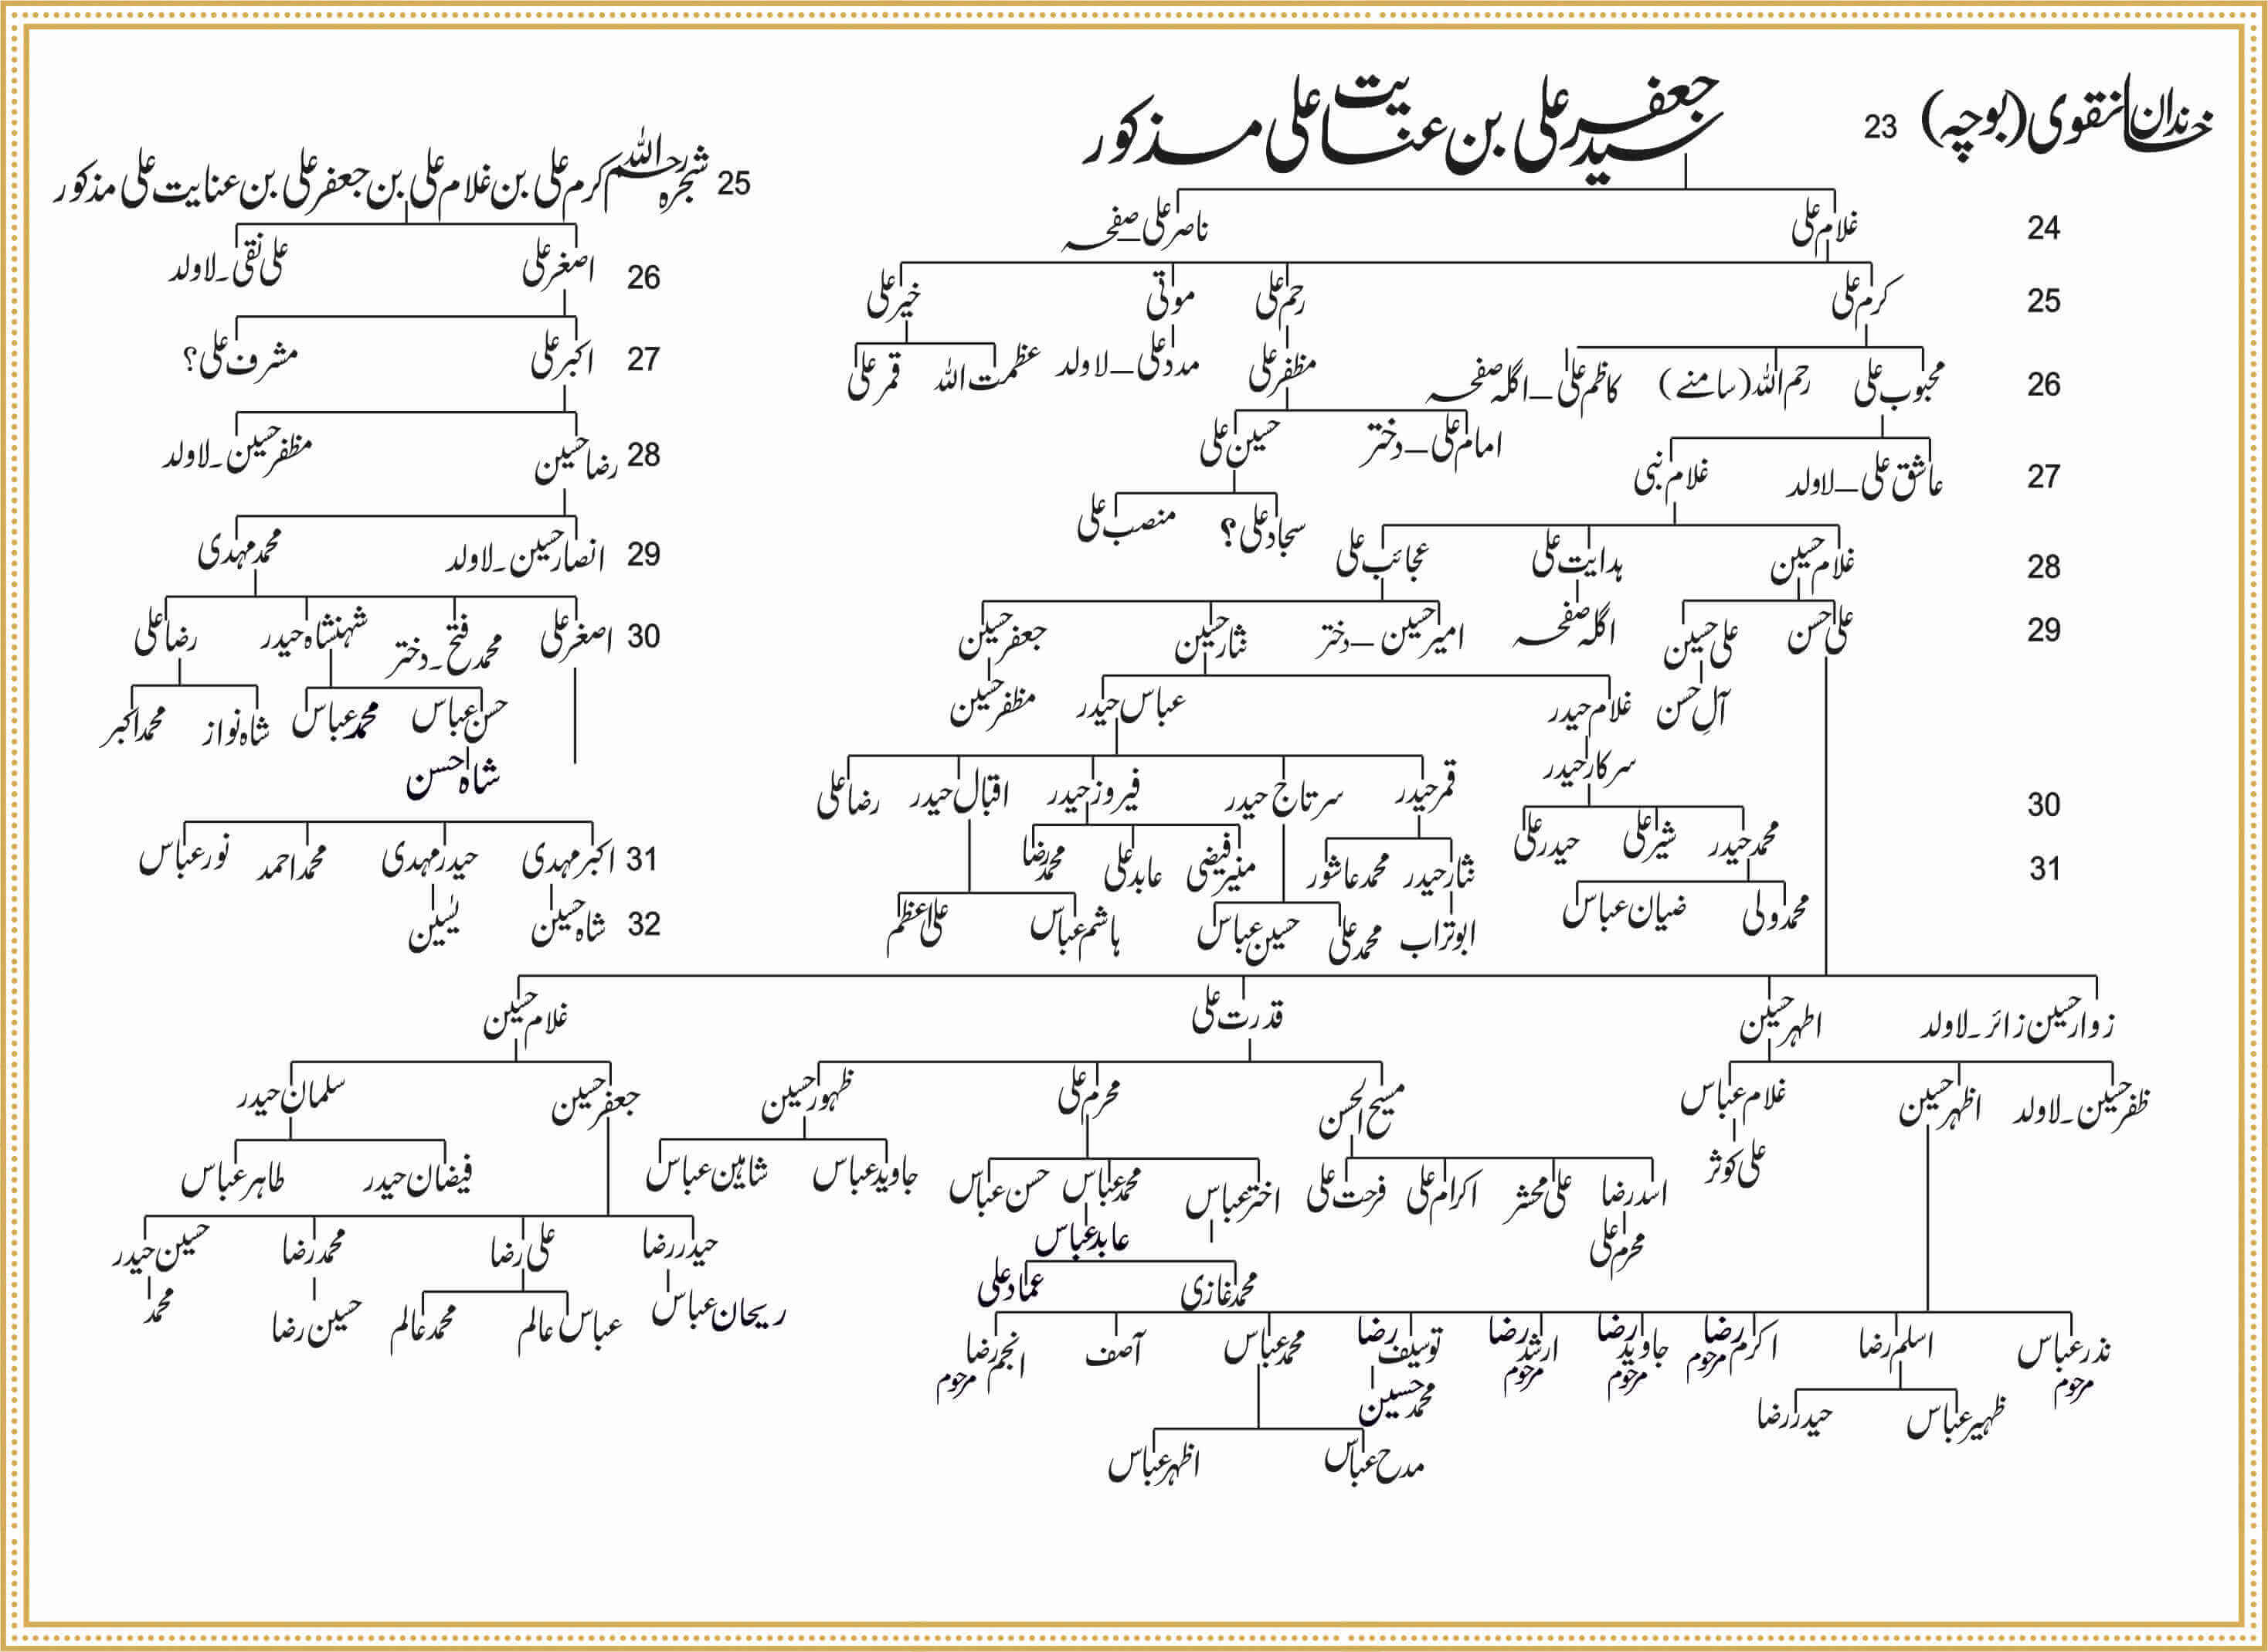 خاندان نقوی (بوچہ) 23 سید جعفر علی بن عنایت علی مذکور
24 غلام علی ناصر علی_صفحہ
25 کرم علی رحم علی موتی خیر علی
26 محبوب علی رحم اللہ (سامنے) کاظم علی_اگلہ صفحہ مظفر علی مدد علی_لاولد عظمت اللہ قمر علی
امام علی_دختر حسین علی
27 عاشق علی_لاولد غلام نبی
سجاد علی؟ منصب علی
28 غلام حسین ہدایت علی عجائب علی
29 علی حسن علی حسین اگلہ صفحہ امیر حسین_دختر نثار حسین جعفر حسین
آل حسن غلام حیدر عباس حیدر مظفر حسین
سرکار حیدر
30 قمر حیدر سرتاج حیدر فیروز حیدر اقبال حیدر رضا علی
31 محمد حیدر شیر علی حیدر علی نثار حیدر محمد عاشور منیر فیضی عابد علی محمد رضا
محمد ولی ضیان عباس ابو تراب محمد علی حسین عباس ہاشم عباس علی اعظم
25 شجرہ رحم اللہ کرم علی بن غلام علی بن جعفر علی بن عنایت علی مذکور
26 اصغر علی علی نقی۔لاولد
27 اکبر علی مشرف علی؟
28 رضا حسین مظفر حسین۔لاولد
29 انصار حسین۔لاولد محمد مہدی
30 اصغر علی محمد فتح۔دختر شہنشاہ حیدر رضا علی
حسن عباس محمد عباس شاہ نواز محمد اکبر
شاہ حسن
31 اکبر مہدی حیدر مہدی محمد احمد نور عباس
32 شاہ حسین یٰسین
زوار حسین زائر۔لاولد اطہر حسین قدرت علی غلام حسین
ظفر حسین۔لاولد اظہر حسین غلام عباس مسیح الحسن محرم علی ظہور حسین جعفر حسین سلمان حیدر
علی کوثر اسد رضا علی محشر اکرام علی فرحت علی اختر عباس محمد عباس حسن عباس جاوید عباس شاہین عباس فیضان حیدر طاہر عباس
محرم علی عابد عباس حیدر رضا علی رضا محمد رضا حسین حیدر
محمد غازی عماد علی ریحان عباس عباس عالم محمد عالم حسین رضا محمد
نذر عباس مرحوم اسلم رضا اکرم رضا مرحوم جاوید رضا مرحوم ارشد رضا مرحوم توسیف رضا محمد عباس آصف انجم رضا مرحوم
ظہیر عباس حیدر رضا محمد حسین
مدح عباس اظہر عباس